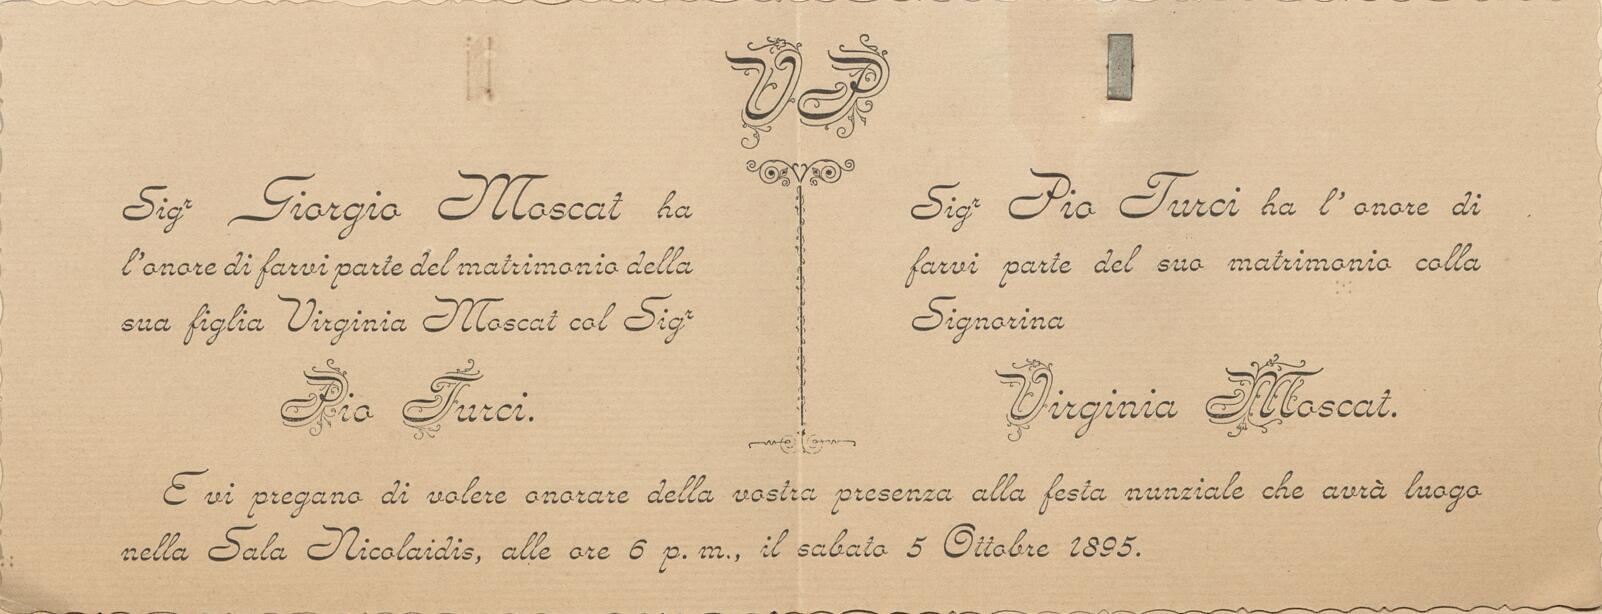 V P
Sigr Giorgio Moscat ha
l'onore di farvi parte del matrimonio della
sua figlia Virginia Moscat col Sigr
Pio Turci.
Sigr Pio Turci ha l'onore di
farvi parte del suo matrimonio colla
Signorina
Virginia Moscat.
E vi pregano di volere onorare della vostra presenza alla festa nunziale che avrà luogo
nella Sala Nicolaidis, alle ore 6 p. m., il sabato 5 Ottobre 1895.